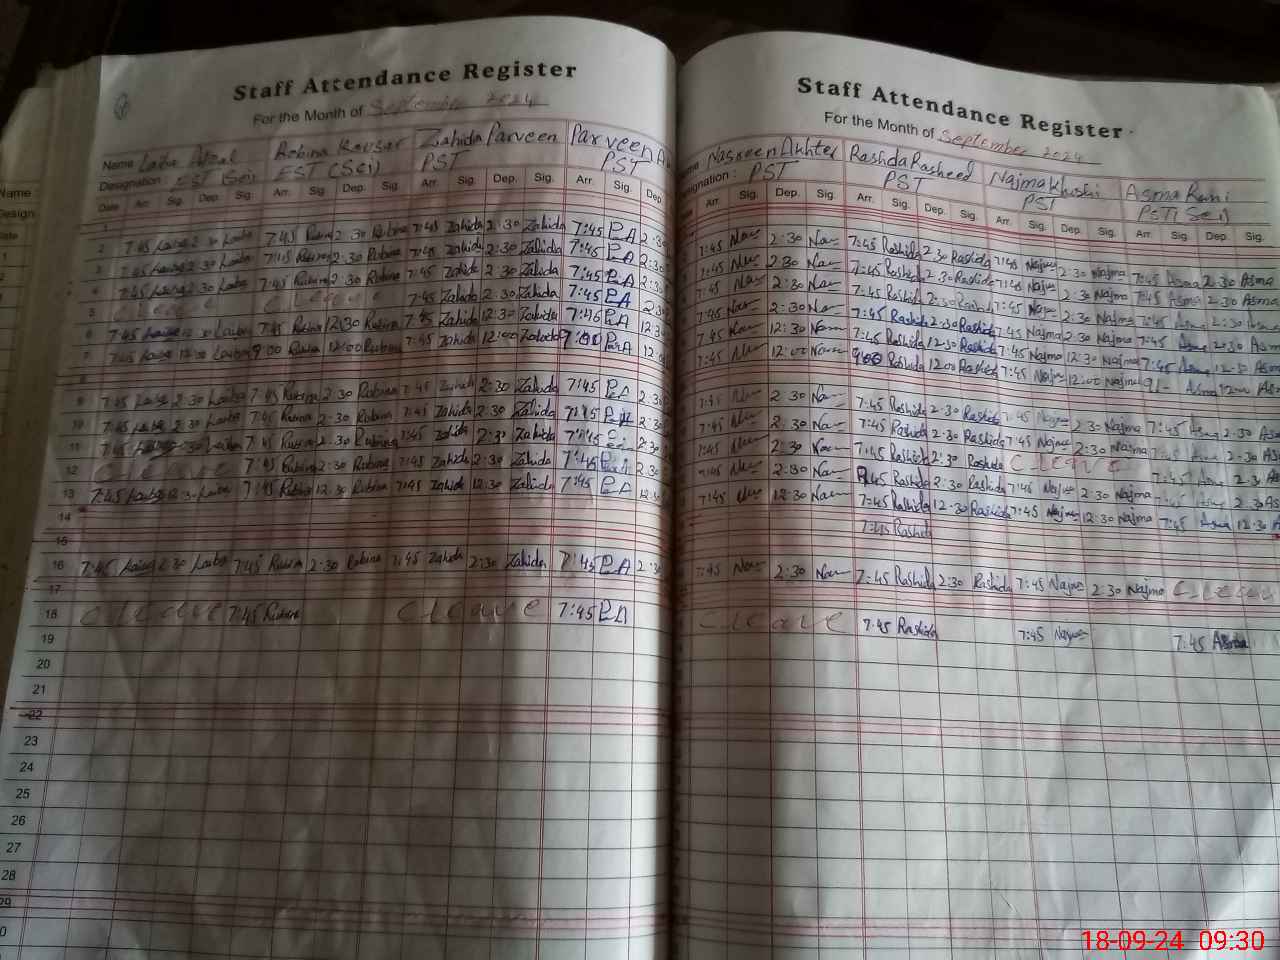 Staff Attendance Register
For the Month of September 2024
Name Laiba Afzal Robina Kousar Zahida Parveen Parveen A
Designation : EST (Sci) EST (Sci) PST PST
Date Arr. Sig. Dep. Sig. Arr. Sig. Dep. Sig. Arr. Sig. Dep. Sig. Arr. Sig. Dep.
1
2 7:45 Laiba 2:30 Laiba 7:45 Rubina 2:30 Rubina 7:45 Zahida 2:30 Zahida 7:45 PA 2:30
3 7:45 Laiba 2:30 Laiba 7:45 Rubina 2:30 Rubina 7:45 Zahida 2:30 Zahida 7:45 PA 2:30
4 7:45 Laiba 2:30 Laiba 7:45 Rubina 2:30 Rubina 7:45 Zahida 2:30 Zahida 7:45 PA 2:30
5 C leave C leave 7:45 Zahida 2:30 Zahida 7:45 PA 2:30
6 7:45 Laiba 12:30 Laiba 7:45 Rubina 12:30 Rubina 7:45 Zahida 12:30 Zahida 7:45 PA 12:30
7 7:45 Laiba 12:30 Laiba 9:00 Rubina 12:00 Rubina 7:45 Zahida 12:00 Zahida PA
8
9 7:45 Laiba 2:30 Laiba 7:45 Rubina 2:30 Rubina 7:45 Zahida 2:30 Zahida 7:45 PA 2:30
10 7:45 Laiba 2:30 Laiba 7:45 Rubina 2:30 Rubina 7:45 Zahida 2:30 Zahida 7:45 PA 2:30
11 7:45 Laiba 2:30 Laiba 7:45 Rubina 2:30 Rubina 7:45 Zahida 2:30 Zahida 7:45 2:30
12 C leave 7:45 Rubina 2:30 Rubina 7:45 Zahida 2:30 Zahida 7:45 2:30
13 7:45 Laiba 12:30 Laiba 7:45 Rubina 12:30 Rubina 7:45 Zahida 12:30 Zahida 7:45 PA 12:30
14
15
16 7:45 Laiba 2:30 Laiba 7:45 Rubina 2:30 Rubina 7:45 Zahida 2:30 Zahida 7:45 PA 2:30
17
18 C leave 7:45 Rubina C leave 7:45 PA
19
20
21
22
23
24
25
26
27
28
29
0
Staff Attendance Register
For the Month of September 2024
Nasreen Akhter Rashda Rasheed Najma Khushi Asma Rani
Designation : PST PST PST PST (Sci)
Arr. Sig. Dep. Sig. Arr. Sig. Dep. Sig. Arr. Sig. Dep. Sig. Arr. Sig. Dep. Sig.
7:45 2:30 7:45 Rashida 2:30 Rashida 7:45 Najma 2:30 Najma 7:45 Asma 2:30 Asma
7:45 2:30 7:45 Rashida 2:30 Rashida 7:45 Najma 2:30 Najma 7:45 Asma 2:30 Asma
7:45 2:30 7:45 Rashida 2:30 Rashida 7:45 Najma 2:30 Najma 7:45 Asma 2:30 Asma
7:45 2:30 7:45 Rashida 2:30 Rashida 7:45 Najma 2:30 Najma 7:45 Asma 2:30 Asm
7:45 12:30 7:45 Rashida 12:30 Rashida 7:45 Najma 12:30 Najma 7:45 Asma 12:30 Asm
7:45 12:00 9:00 Rashida 12:00 Rashida 7:45 Najma 12:00 Najma Asma 12:00 Asm
7:45 2:30 7:45 Rashida 2:30 Rashida 7:45 Najma 2:30 Najma 7:45 Asma 2:30 Asm
7:45 2:30 7:45 Rashida 2:30 Rashida 7:45 Najma 2:30 Najma 7:45 Asma 2:30 Asm
7:45 2:30 7:45 Rashida 2:30 Rashida C leave 7:45 Asma 2:30 As
7:45 2:30 7:45 Rashida 2:30 Rashida 7:45 Najma 2:30 Najma 7:45 Asma 2:30 As
7:45 12:30 7:45 Rashida 12:30 Rashida 7:45 Najma 12:30 Najma 7:45 Asma 12:30 A
7:45 Rashida
7:45 2:30 7:45 Rashida 2:30 Rashida 7:45 Najma 2:30 Najma C leave
C leave 7:45 Rashida 7:45 Najma 7:45 Asma
18-09-24 09:30